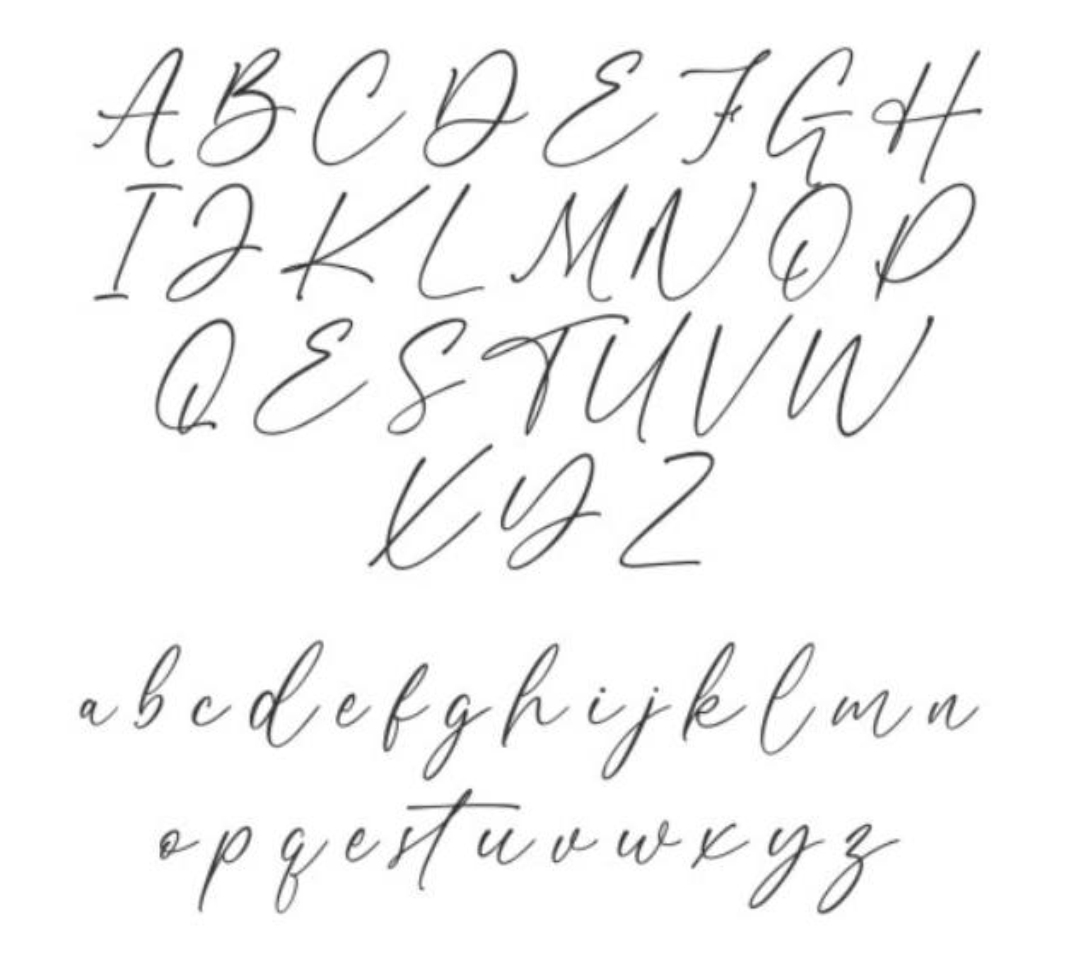 A B C D E F G H
I J K L M N O P
Q E S T U V W
X Y Z
a b c d e f g h i j k l m n
o p q e s t u v w x y z